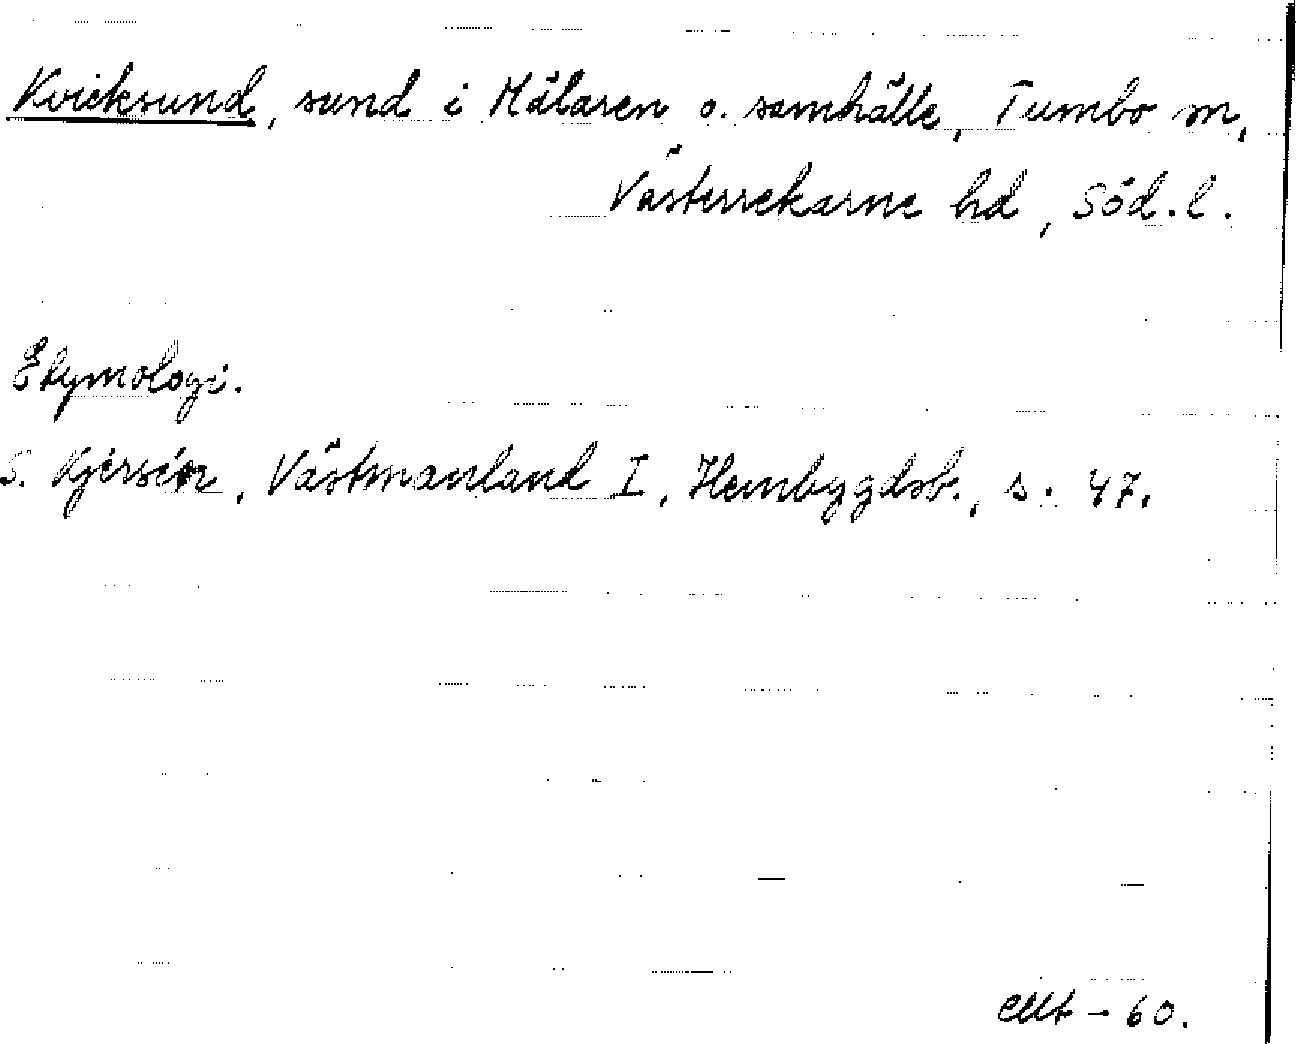 Kvicksund, sund i Mälaren o. samhälle, Tumbo sn,
Västerrekarne hd, Söd. l.
Etymologi.
S. Kjersén, Västmanland I, Hembygdsb., s. 47.
- 60.